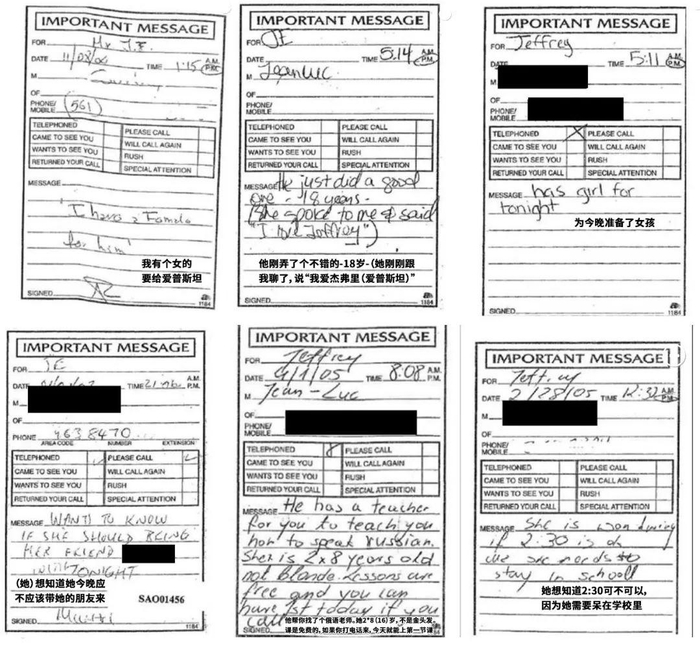 IMPORTANT MESSAGE
FOR Mr J.E.
DATE 11/08/04 TIME 1:15 A.M. P.M.
M
OF
PHONE/MOBILE (561)
TELEPHONED PLEASE CALL
CAME TO SEE YOU WILL CALL AGAIN
WANTS TO SEE YOU RUSH
RETURNED YOUR CALL SPECIAL ATTENTION
MESSAGE
"I have a Female
for him"
我有个女的
要给爱普斯坦
SIGNED
1184
IMPORTANT MESSAGE
FOR JE
DATE TIME 5:14 A.M. P.M.
M JeanLuc
OF
PHONE/MOBILE
TELEPHONED PLEASE CALL
CAME TO SEE YOU WILL CALL AGAIN
WANTS TO SEE YOU RUSH
RETURNED YOUR CALL SPECIAL ATTENTION
MESSAGE He just did a good
one - 18 years -
(She spoke to me & said
"I love Jeffrey")
他刚弄了个不错的-18岁-(她刚刚跟
我聊了，说“我爱杰弗里(爱普斯坦)”
SIGNED
1184
IMPORTANT MESSAGE
FOR Jeffrey
DATE TIME 5:11 A.M. P.M.
M
OF
PHONE/MOBILE
TELEPHONED X PLEASE CALL
CAME TO SEE YOU WILL CALL AGAIN
WANTS TO SEE YOU RUSH
RETURNED YOUR CALL SPECIAL ATTENTION
MESSAGE has girl for
tonight
为今晚准备了女孩
SIGNED
1184
IMPORTANT MESSAGE
FOR JE
DATE TIME A.M. P.M.
M
OF
PHONE 963 8470
AREA CODE NUMBER EXTENSION
TELEPHONED PLEASE CALL
CAME TO SEE YOU WILL CALL AGAIN
WANTS TO SEE YOU RUSH
RETURNED YOUR CALL SPECIAL ATTENTION
MESSAGE WANTS TO KNOW
IF SHE SHOULD BRING
HER FRIEND
TONIGHT
(她)想知道她今晚应
不应该带她的朋友来
SAO01456
SIGNED
IMPORTANT MESSAGE
FOR Jeffrey
DATE 4/1/05 TIME 8:08 A.M. P.M.
M Jean-Luc
OF
PHONE/MOBILE
TELEPHONED PLEASE CALL
CAME TO SEE YOU WILL CALL AGAIN
WANTS TO SEE YOU RUSH
RETURNED YOUR CALL SPECIAL ATTENTION
MESSAGE He has a teacher
for you to teach you
how to speak russian.
She is 2x8 years old
not blonde. Lessons are
free and you can
have 1st today if you
call
他帮你找了个俄语老师。她2*8(16)岁，不是金头发。
课是免费的，如果你打电话来，今天就能上第一节课
IMPORTANT MESSAGE
FOR Jeffrey
DATE 2/28/05 TIME 12:32 A.M. P.M.
M
OF
PHONE/MOBILE
TELEPHONED PLEASE CALL
CAME TO SEE YOU WILL CALL AGAIN
WANTS TO SEE YOU RUSH
RETURNED YOUR CALL SPECIAL ATTENTION
MESSAGE She is wondering
if 2:30 is ok
she needs to
stay in school
她想知道2:30可不可以，
因为她需要呆在学校里
SIGNED
1184